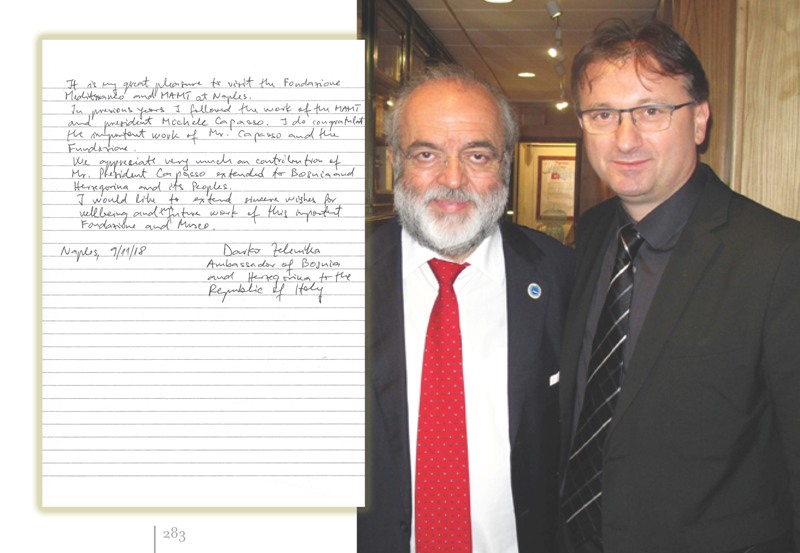 It is my great pleasure to visit the Fondazione
Mediterraneo and MAMT at Naples.
In previous years I followed the work of the MAMT
and president Michele Capasso. I do congratulat
the important work of Mr. Capasso and the
Fundazione.
We appreciate very much an contribution of
Mr. President Capasso extended to Bosnia and
Herzegovina and its Peoples.
I would like to extend sincere wishes for
wellbeing and future work of this important
Fondazione and Museo.
Naples, 9/11/18
Darko Zelenika
Ambassador of Bosnia
and Herzegovina to the
Republic of Italy
283